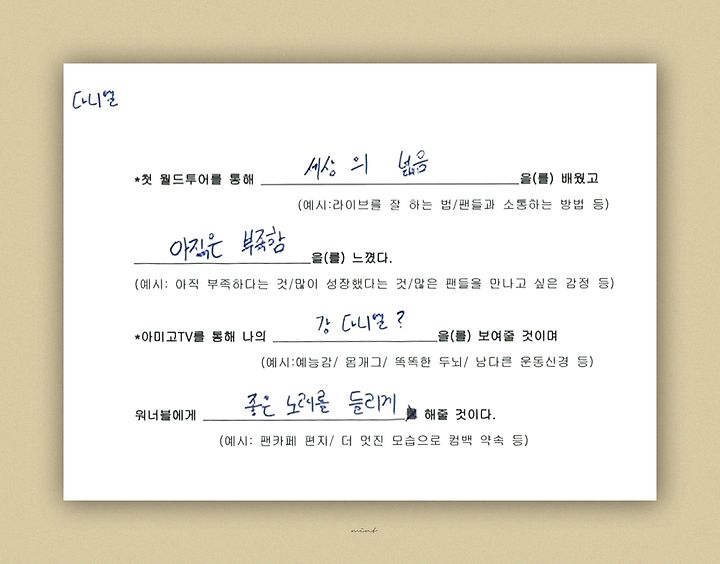 다니엘
*첫 월드투어를 통해 세상의 넓음을(를) 배웠고
(예시:라이브를 잘 하는 법/팬들과 소통하는 방법 등)
아직은 부족함을(를) 느꼈다.
(예시: 아직 부족하다는 것/많이 성장했다는 것/많은 팬들을 만나고 싶은 감정 등)
*아미고TV를 통해 나의 강다니엘?을(를) 보여줄 것이며
(예시:예능감/ 몸개그/ 똑똑한 두뇌/ 남다른 운동신경 등)
워너블에게 좋은 노래를 들리게 해줄 것이다.
(예시: 팬카페 편지/ 더 멋진 모습으로 컴백 약속 등)
mint